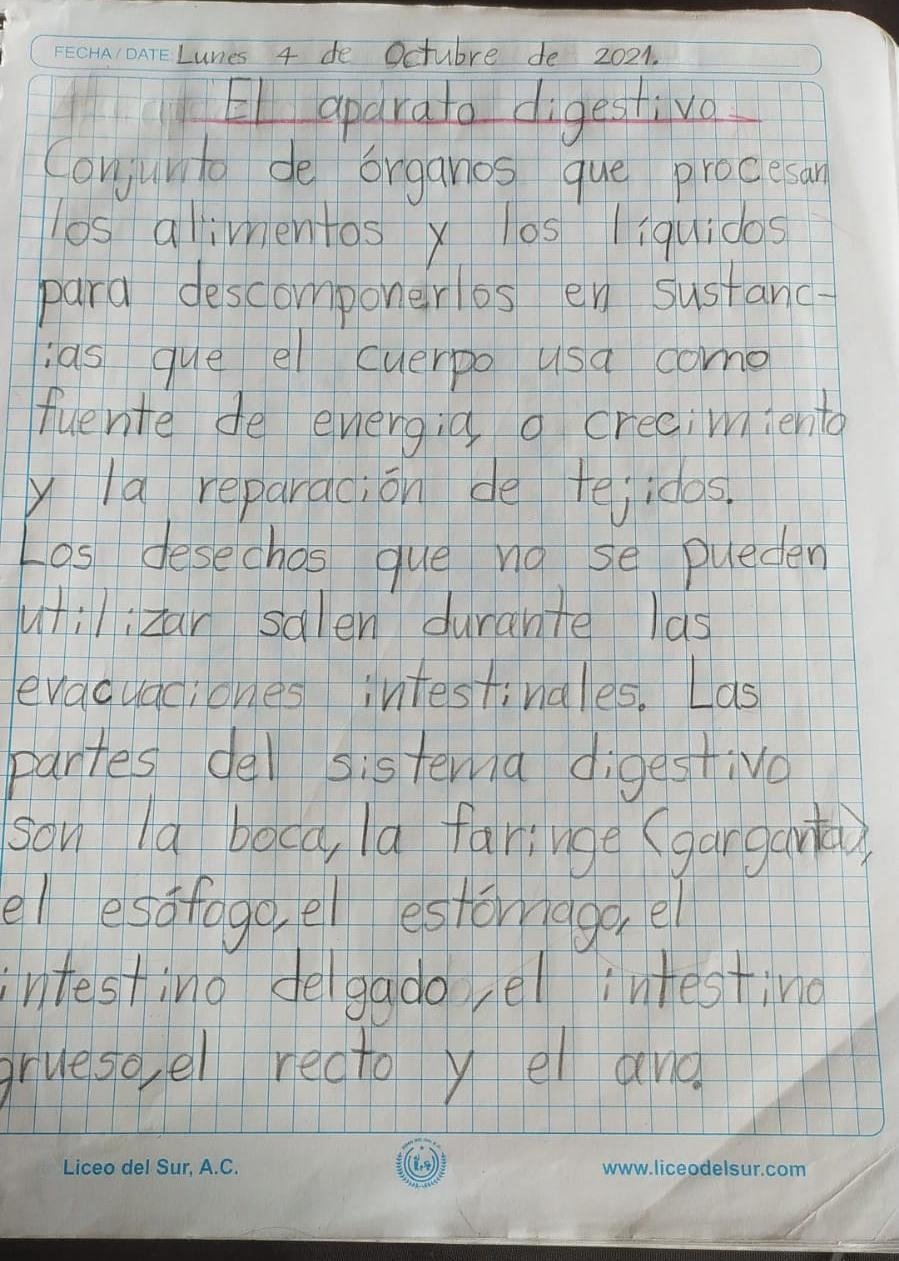 FECHA/DATE Lunes 4 de Octubre de 2021.
El aparato digestivo
Conjunto de órganos que procesan
los alimentos y los líquidos
para descomponerlos en sustanc-
ias que el cuerpo usa como
fuente de energia, o crecimiento
y la reparación de tejidos.
Los desechos que no se pueden
utilizar salen durante las
evacuaciones intestinales. Las
partes del sistema digestivo
son la boca, la faringe (garganta),
el esófago, el estómago, el
intestino delgado, el intestino
grueso, el recto y el ano.
Liceo del Sur, A.C. www.liceodelsur.com